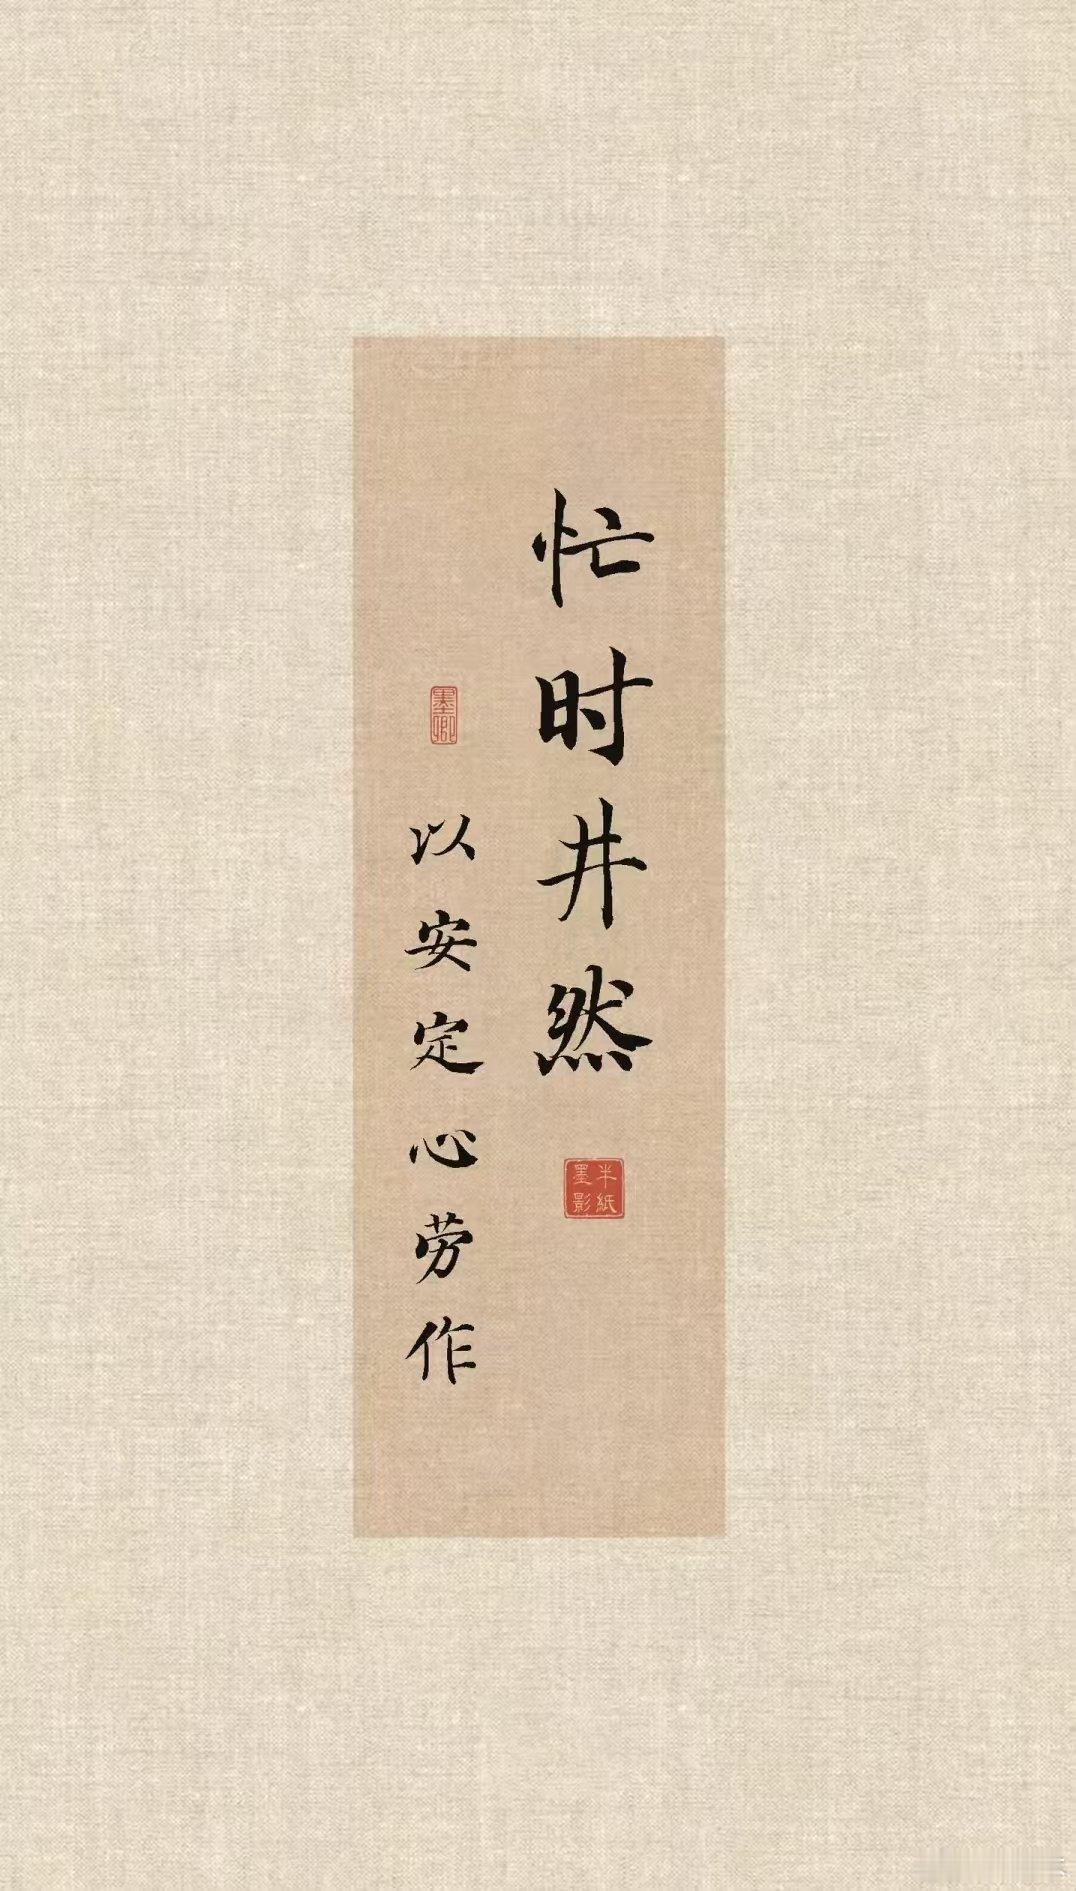 忙时井然
半纸墨影
墨卿
以安定心劳作